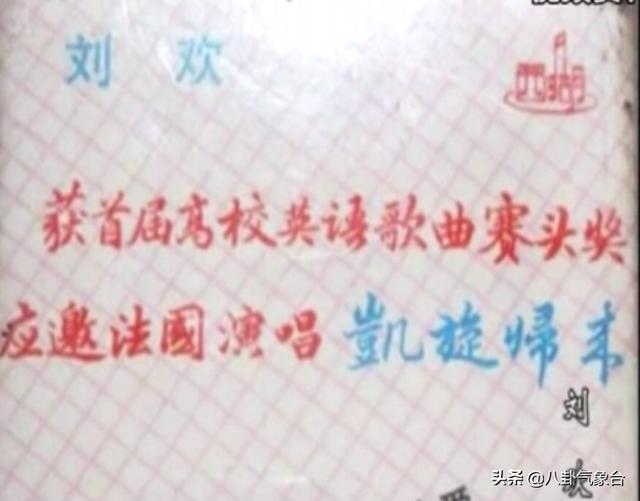 刘 欢
获首届高校英语歌曲赛头奖
应邀法國演唱 凱旋帰来
刘
欢
头条 @八卦气象台